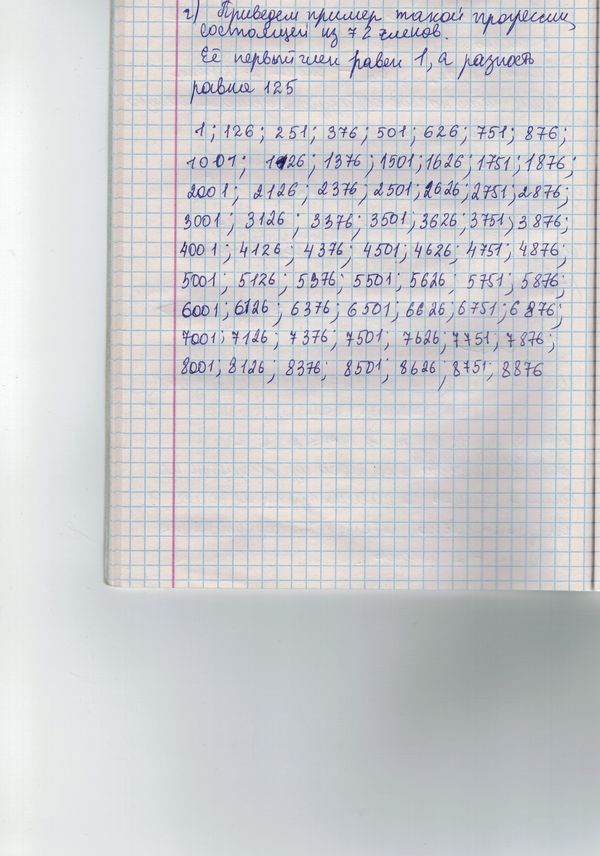 г) Приведем пример такой прогрессии,
состоящей из 72 членов.
Её первый член равен 1, а разность
равна 125
1; 126; 251; 376; 501; 626; 751; 876;
1001; 1126; 1376; 1501; 1626; 1751; 1876;
2001; 2126; 2376; 2501; 2626; 2751; 2876;
3001; 3126; 3376; 3501; 3626; 3751; 3876;
4001; 4126; 4376; 4501; 4626; 4751; 4876;
5001; 5126; 5376; 5501; 5626; 5751; 5876;
6001; 6126; 6376; 6501; 6626; 6751; 6876;
7001; 7126; 7376; 7501; 7626; 7751; 7876;
8001; 8126; 8376; 8501; 8626; 8751; 8876